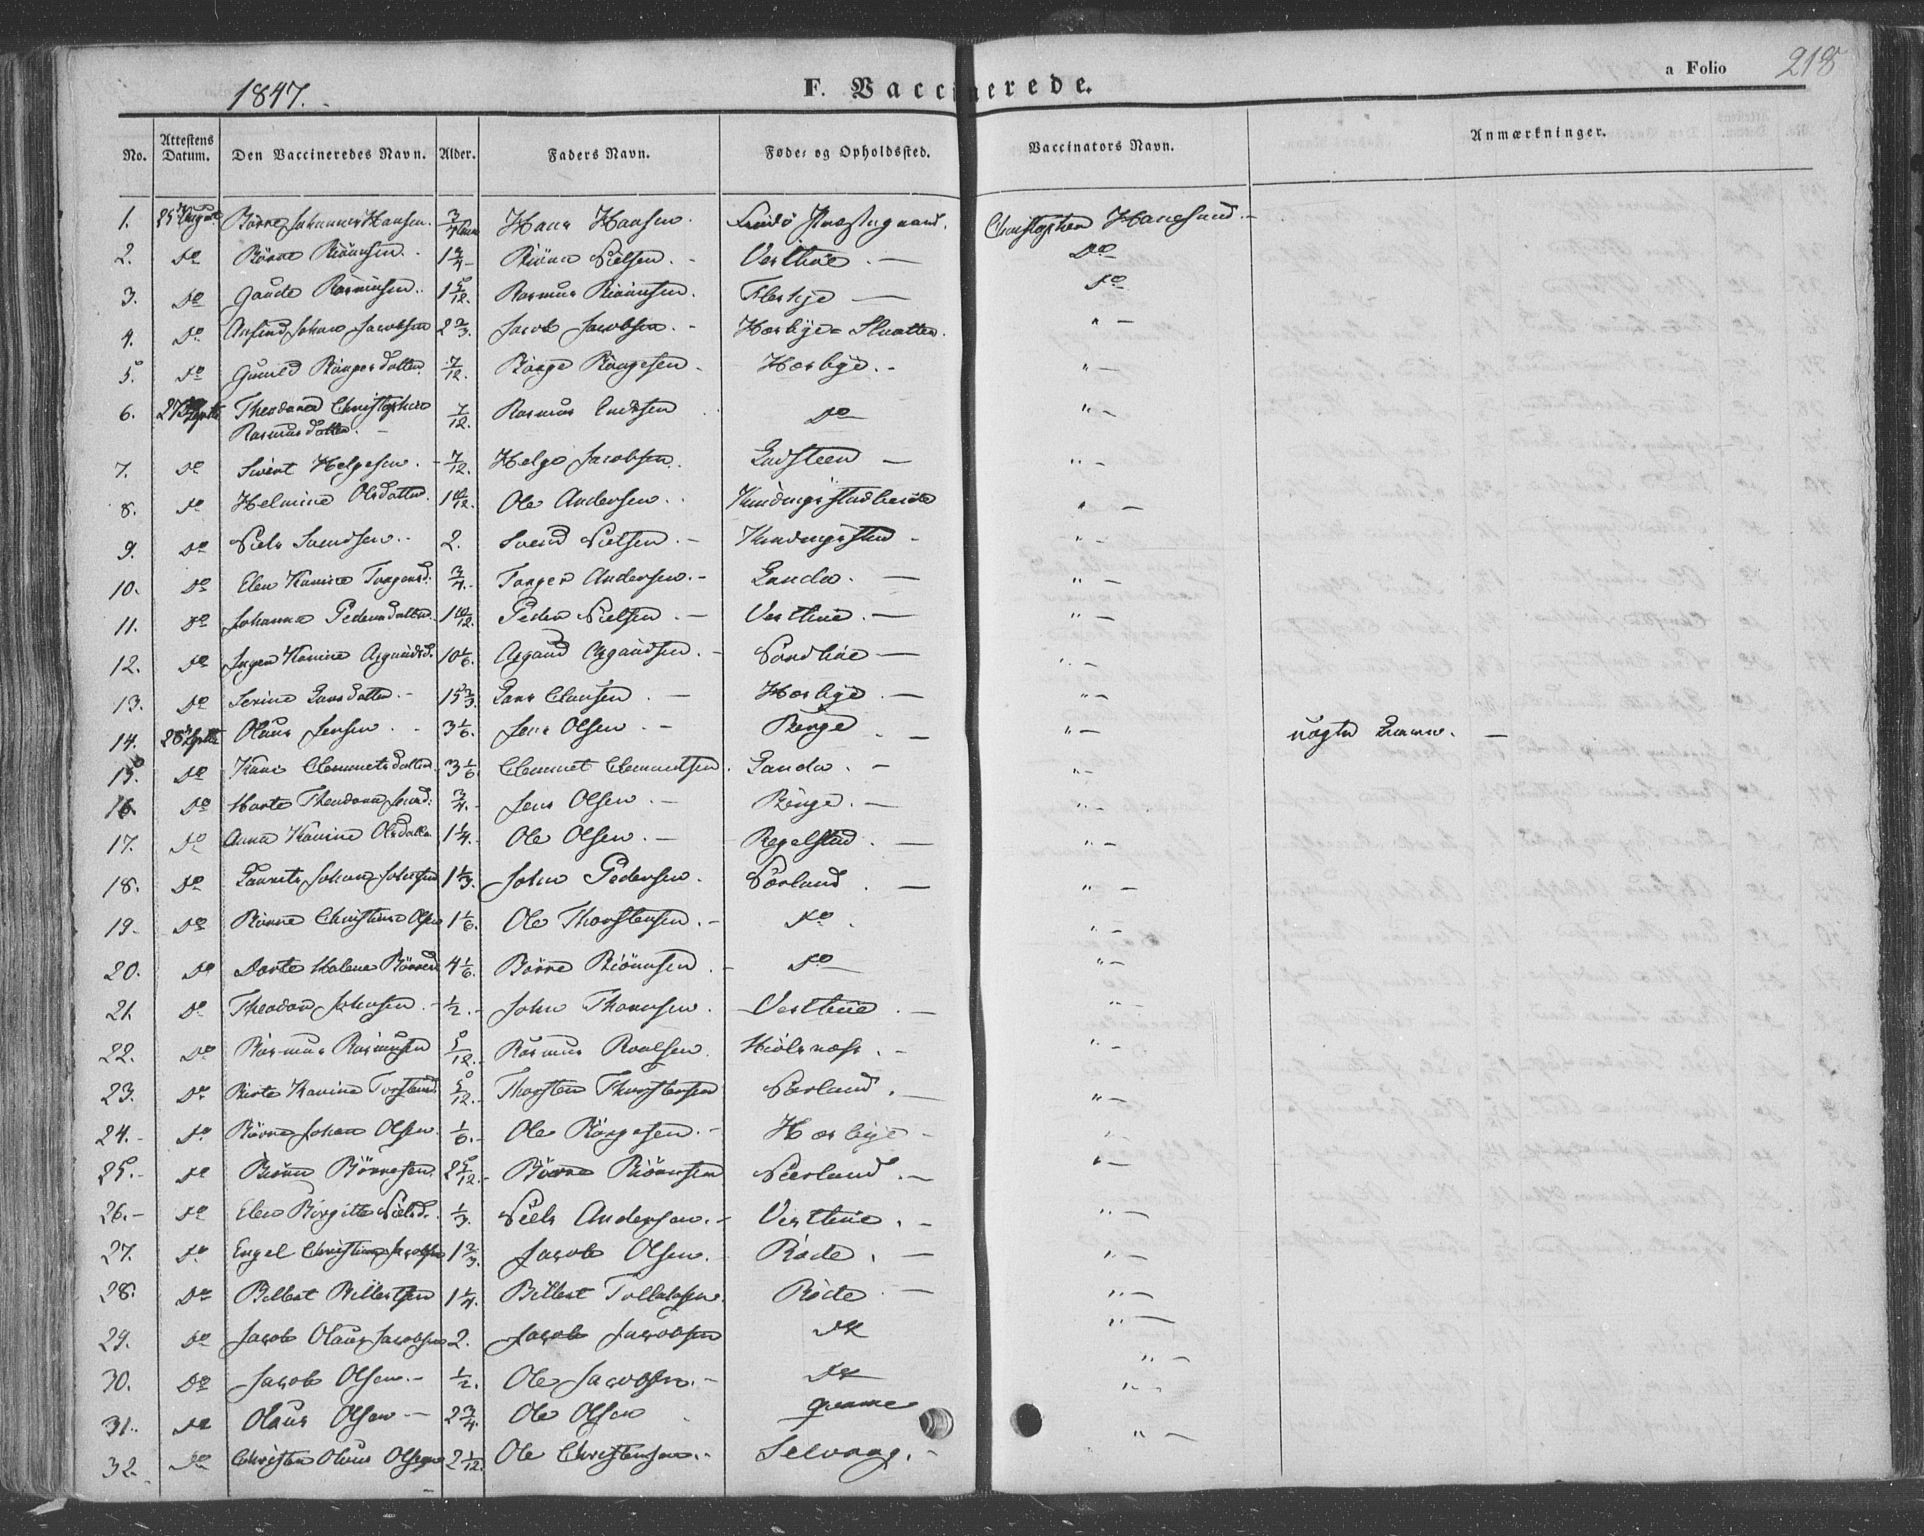 1847.
F. Vaccinerede.
a Folio 218
No. Attestens Datum. Den Vaccineredes Navn. Alder. Faders Navn. Føde- og Opholdssted. Vaccinators Navn. Anmærkninger.
1. 25 August Børre Johannes Hansen. 3/4 Hans Hansen. Christopher
2. Do Børre Biørnsen. 1 3/4 Biørn Nielsen. Vesthue. Do
3. Do Gaude Rasmussen. 1 5/12. Rasmus Biørnsen. Do
4. Do Johan Jacobsen 2 2/3. Jacob Jacobsen. " —
5. Do Gunild Børgesdatter. 7/12. Børge Børgesen. Hæsbye. " —
6. 27 Septb Theodora Christophine Rasmusdatter. 7/12. Rasmus Do " —
7. Do Sivert Helgesen. 7/12. Helge Jacobsen. Gudsteen — " —
8. Do Helmine Olsdatter. 1 10/12. Ole Andersen. " —
9. Do Niels Svendsen. 2. Svend Nielsen. — " —
10. Do Elen Karine Torgersd: 3/4. Torger Andersen. — Landa. — " —
11. Do Johanna Pedersdatter. 1 10/12. Peder Nielsen. — Vesthue. — " —
12. Do Inger Karine Asgautsd. 10 1/6. Asgaud Asgaudsen. — Nordhue — " —
13. Do Serine Larsdatter. — 15 2/3. Lars Clausen. — Hæsbye. — " —
14. 28 Septb Olaus Jensen. 3 1/6. Jens Olsen. — Renge. — " — —
15. Do Kari Clemmetsdatter 3 1/6 Clemmet Clemmetsen. Landa. — " —
16. Do Marte Theodora Jensd: 3/4. — Jens Olsen. — Renge. — " —
17. Do Anna Karine Olsdatter 1 1/4. — Ole Olsen. — Regelstad. — " —
18. Do Laurits Johan Johnsen 1 1/3. John Pedersen. Nærland. — " —
19. Do Børre Christian Olsen 1 1/6. Ole Thorstensen. — Do. " —
20. Do Dorte Malene Børresd 4 1/6. Børre Biørnsen. — Do — " —
21. Do Theodor Johnsen. — 1/2. — John Thomsen. Vesthue. — " —
22. Do Rasmus Rasmussen 5/12. — Rasmus Roalsen. Hiølsnæss. — " —
23. Do Berte Karine Torstensd 5/12. — Thorsten Thorstensen Nærland. — " —
24. — Do Børre Johan Olsen. 1/6. — Ole Børgesen. — Hæsbye — "
25. — Do Biørn Børresen. 2 5/12. — Børre Biørnsen Nærland. — " —
26. — Do Elen Birgitte Nielsd. 1/3. Niels Andersen. — Vesthue. — " —
27. Do Engel Christine Jacobsen 1 2/3. Jacob Olsen. Røde. — " —
28. Do Billert Billertsen 1 1/4. Billert Tollaksen. Røde. — " —
29. Do Jacob Olaus Jacobsen 2. Jacob Jacobsen Do " —
30. Do Jacob Olsen. — 1/2. Ole Jacobsen. — Do " —
31. Do Olaus Olsen — 2 3/4. Ole Olsen " —
32. Do Christen Olaus Olsen 2 1/12. Ole Christensen. — Selvaag. — " —